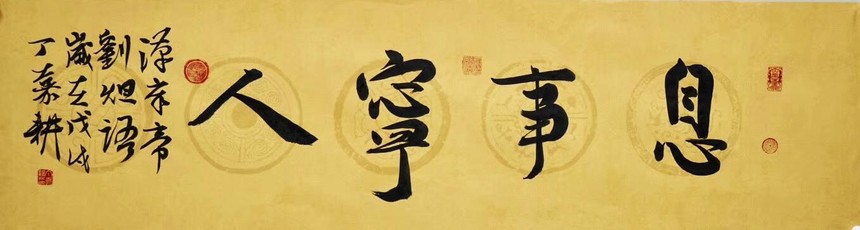 息事寧人
漢章帝
劉炟語
歲在戊戌
丁慕耕